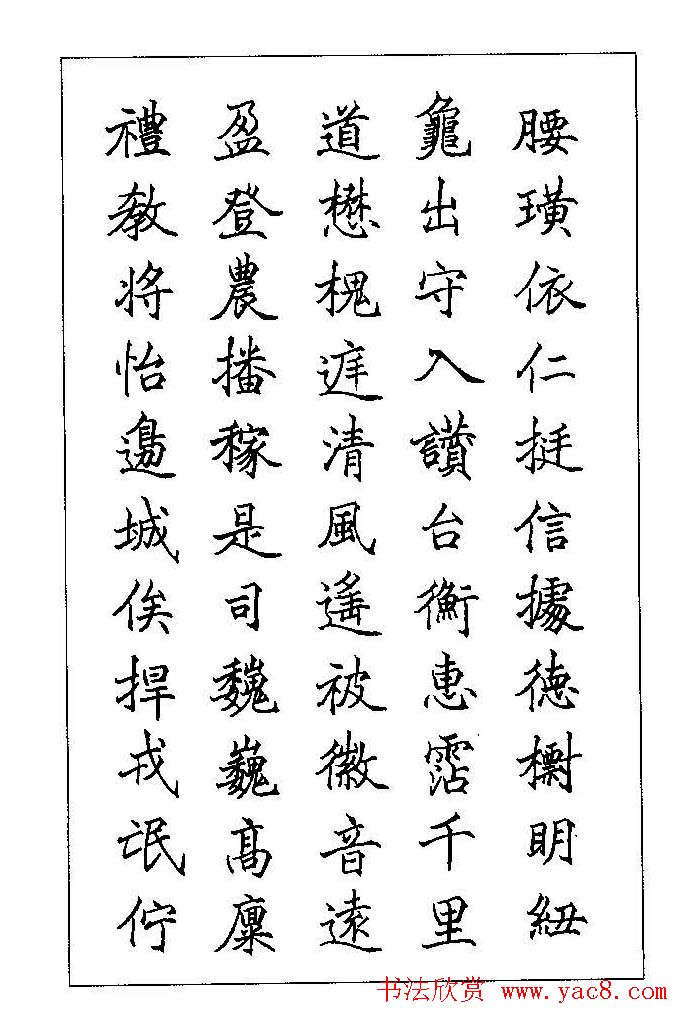 腰璜依仁挺信據德樹明紐
龜出守入讚台衡惠霑千里
道懋槐庭清風遙被徽音遠
盈登農播稼是司魏巍高廩
禮教將怡邊城俟捍戎氓佇
书法欣赏 www.yac8.com